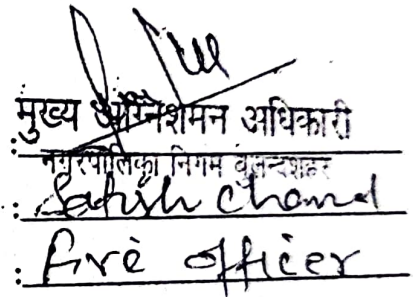 मुख्य अग्निशमन अधिकारी
नगरपालिका निगम बुलन्दशहर
: Satish Chand
: fire officer